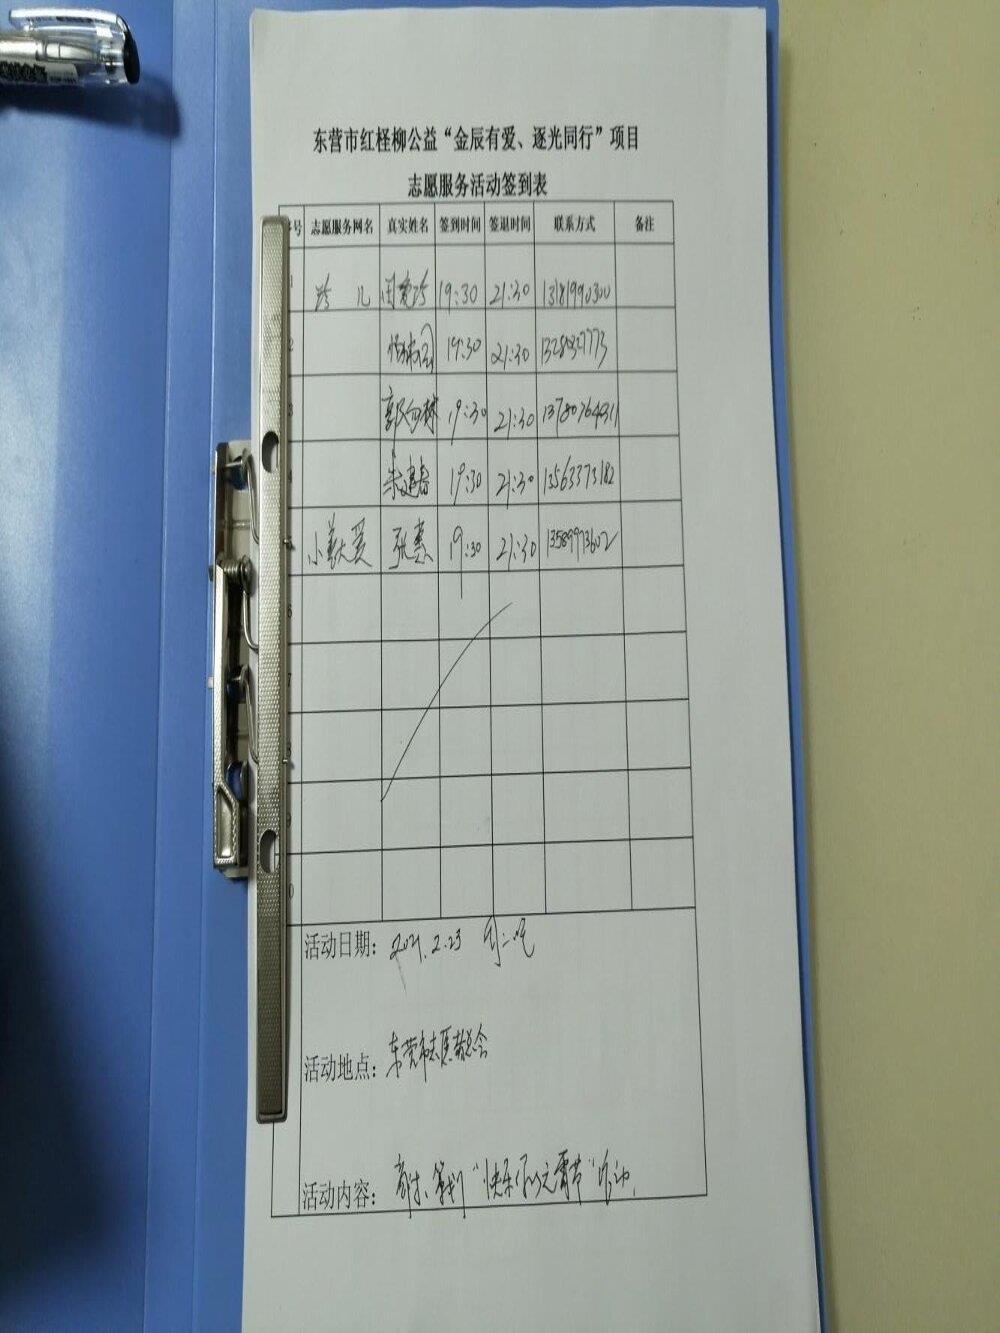 东营市红柽柳公益“金辰有爱、逐光同行”项目
志愿服务活动签到表
号 志愿服务网名 真实姓名 签到时间 签退时间 联系方式 备注
1 玲 儿 19:30 21:30
2 19:30 21:30
3 19:30 21:30 13780764311
4 朱建春 19:30 21:30 13563373182
小美大爱 张 19:30 21:30 13589973602
6
7
8
9
0
活动日期: 2021.2.23 周二晚
活动地点: 东营市志愿者总会
活动内容: 商讨、策划“快乐 元宵节”活动.